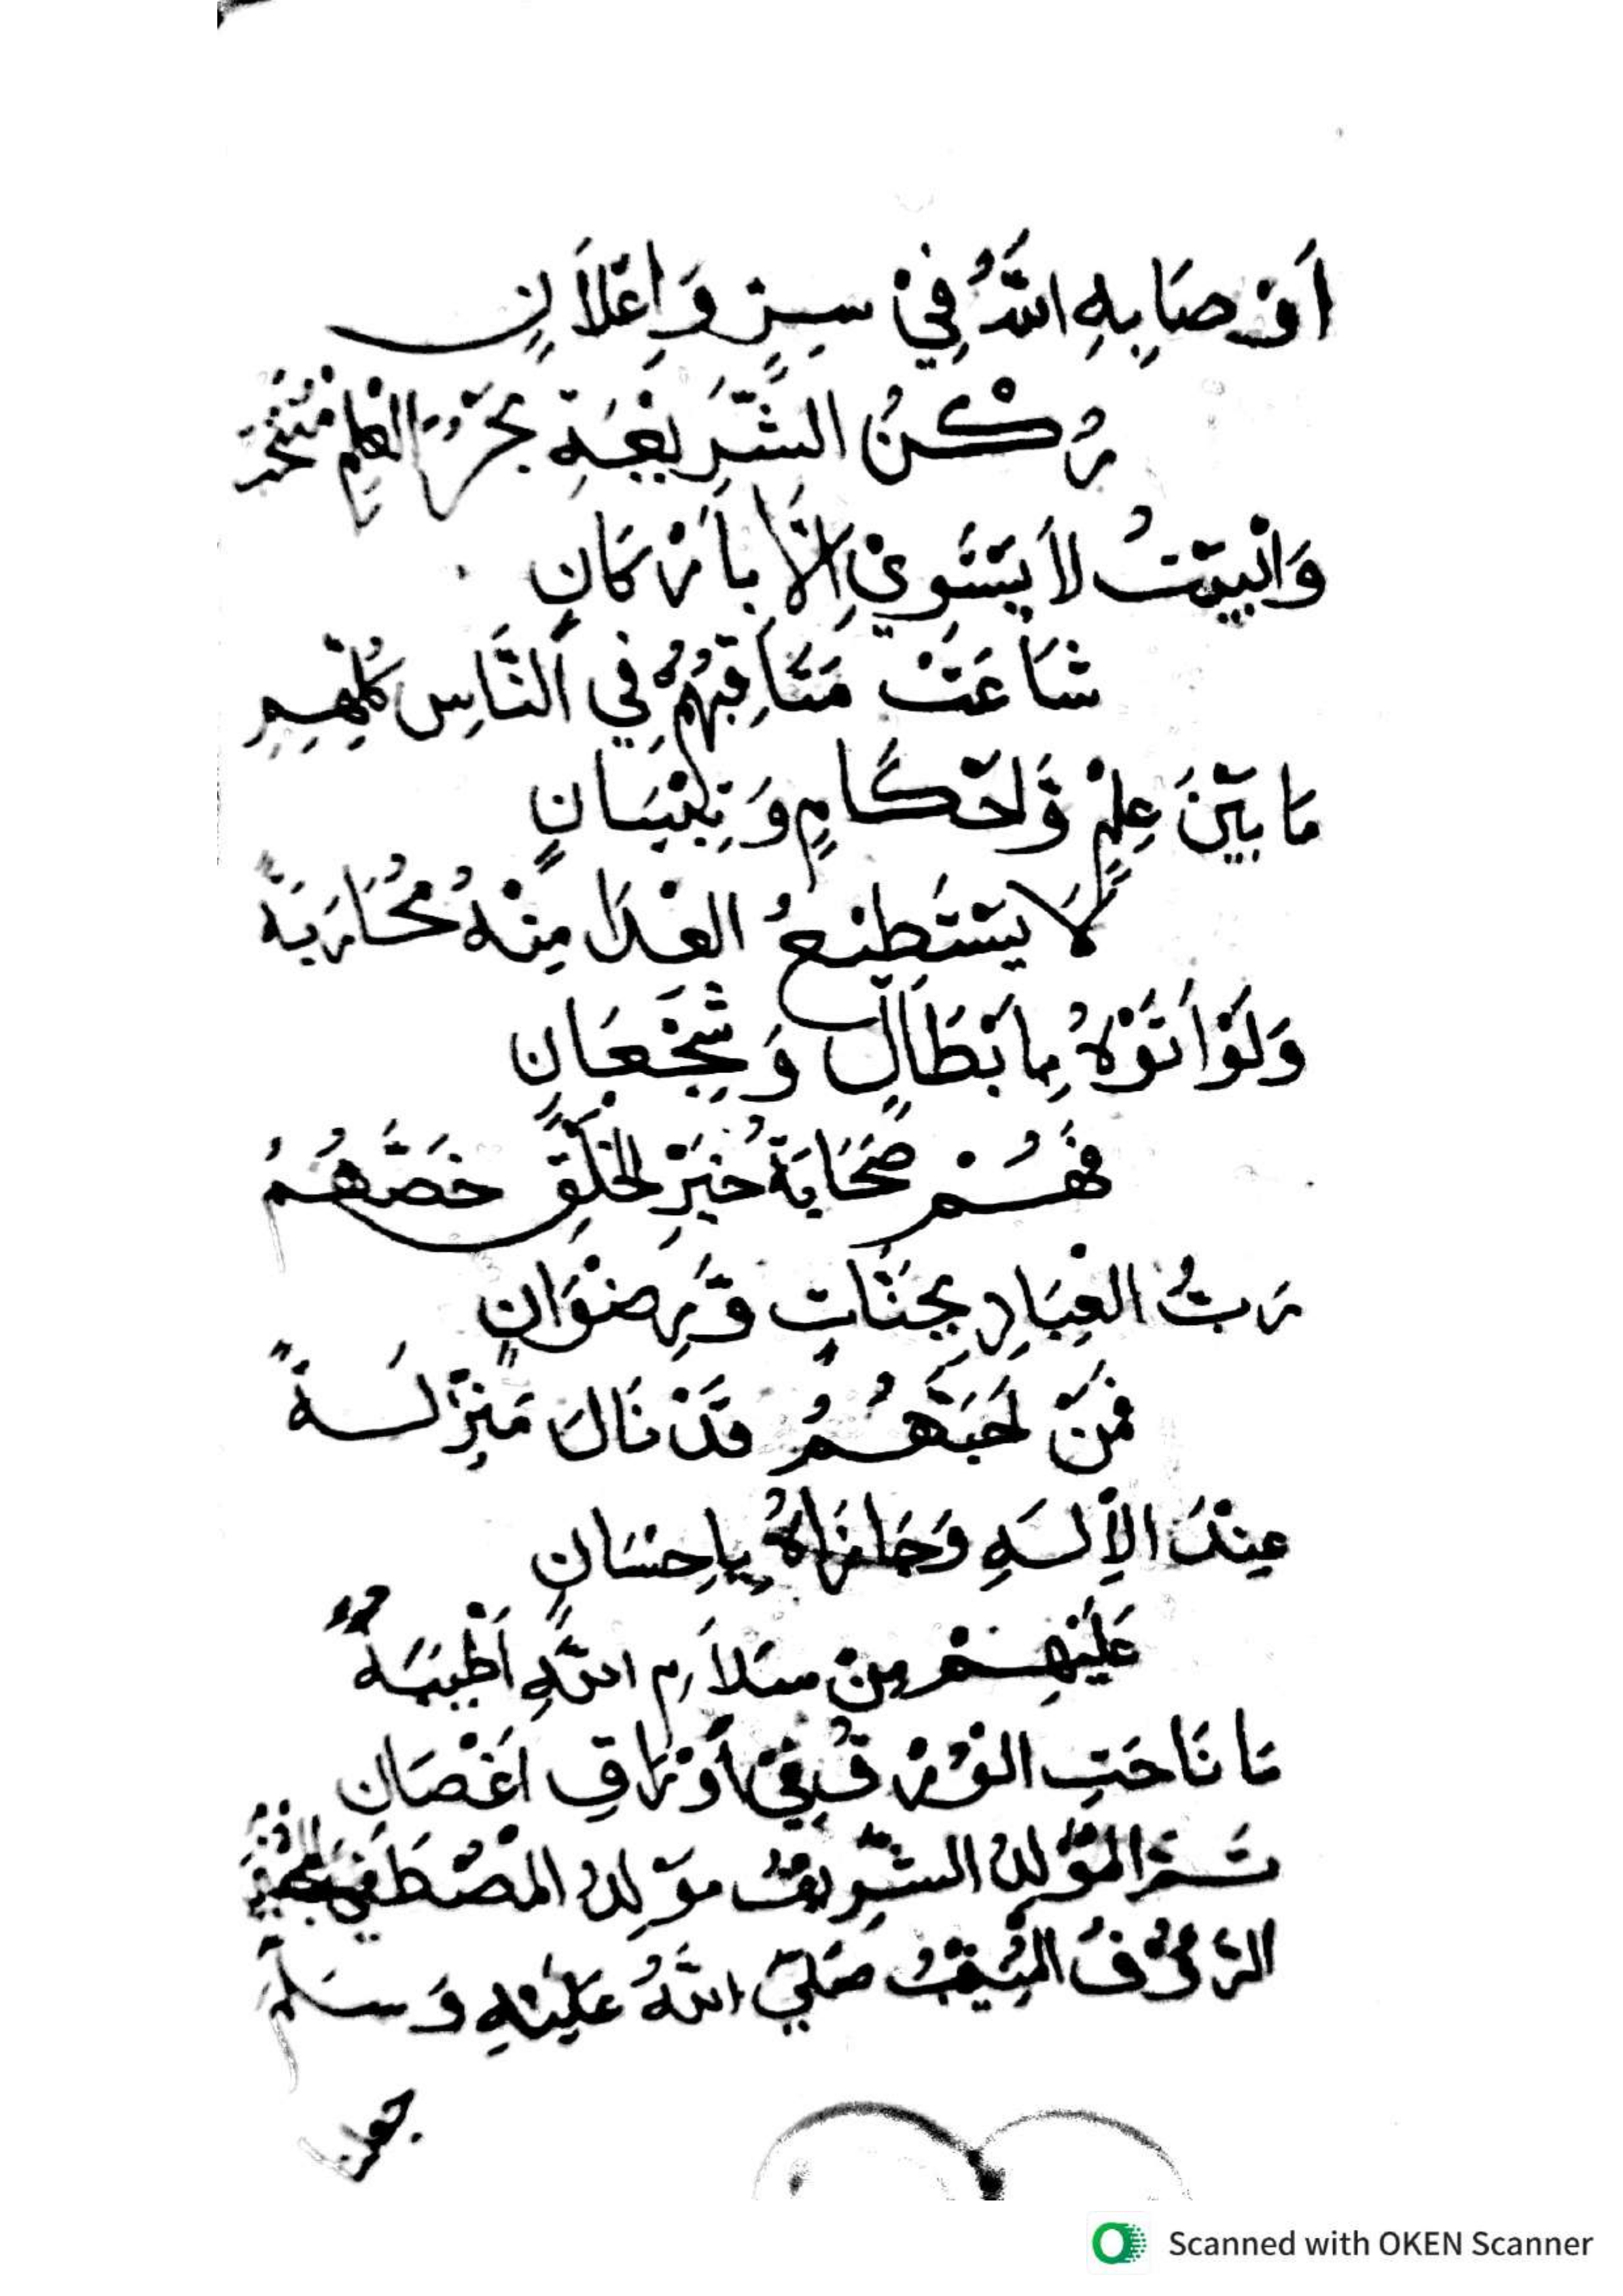 أَوْصَا بِهِ اللّٰهُ فِيْ سِرٍّ وَاِعْلَانٍ
رُكْنُ الشَّرِيْعَةِ بَحْرُ الْعِلْمِ
وَالْبَيْتُ لَا يَسْتَوِيْ اِلَّا بِاَرْكَانٍ
شَاعَتْ مَنَاقِبُهُمْ فِي النَّاسِ كُلِّهِمِ
مَا بَيْنَ عِلْمٍ وَّاَحْكَامٍ وَتِبْيَانٍ
لَا يَسْتَطِيْعُ الْعِدَا مِنْهُ مُحَارَبَةً
وَلَوْ اَتَوْهُ بِاَبْطَالٍ وَشِجْعَانٍ
فَهُمْ صَحَابَةُ خَيْرِ الْخَلْقِ خَصَّهُمُ
رَبُّ الْعِبَادِ بِجَنَّاتٍ وَّرِضْوَانٍ
فَمَنْ اَحَبَّهُمُ قَدْ نَالَ مَنْزِلَةً
عِنْدَ الْاِلٰهِ وَجَازَاهُ بِاِحْسَانٍ
عَلَيْهِمْ مِنْ سَلَامِ اللّٰهِ اَطْيَبُهُ
مَا نَاحَتِ الْوُرْقُ فِيْ اَوْرَاقِ اَغْصَانٍ
تَمَّ الْمَوْلِدُ الشَّرِيْفُ مَوْلِدُ الْمُصْطَفٰى
الرَّءُوْفُ الْمُنِيْفُ صَلَّى اللّٰهُ عَلَيْهِ وَسَلَّمَ
Scanned with OKEN Scanner